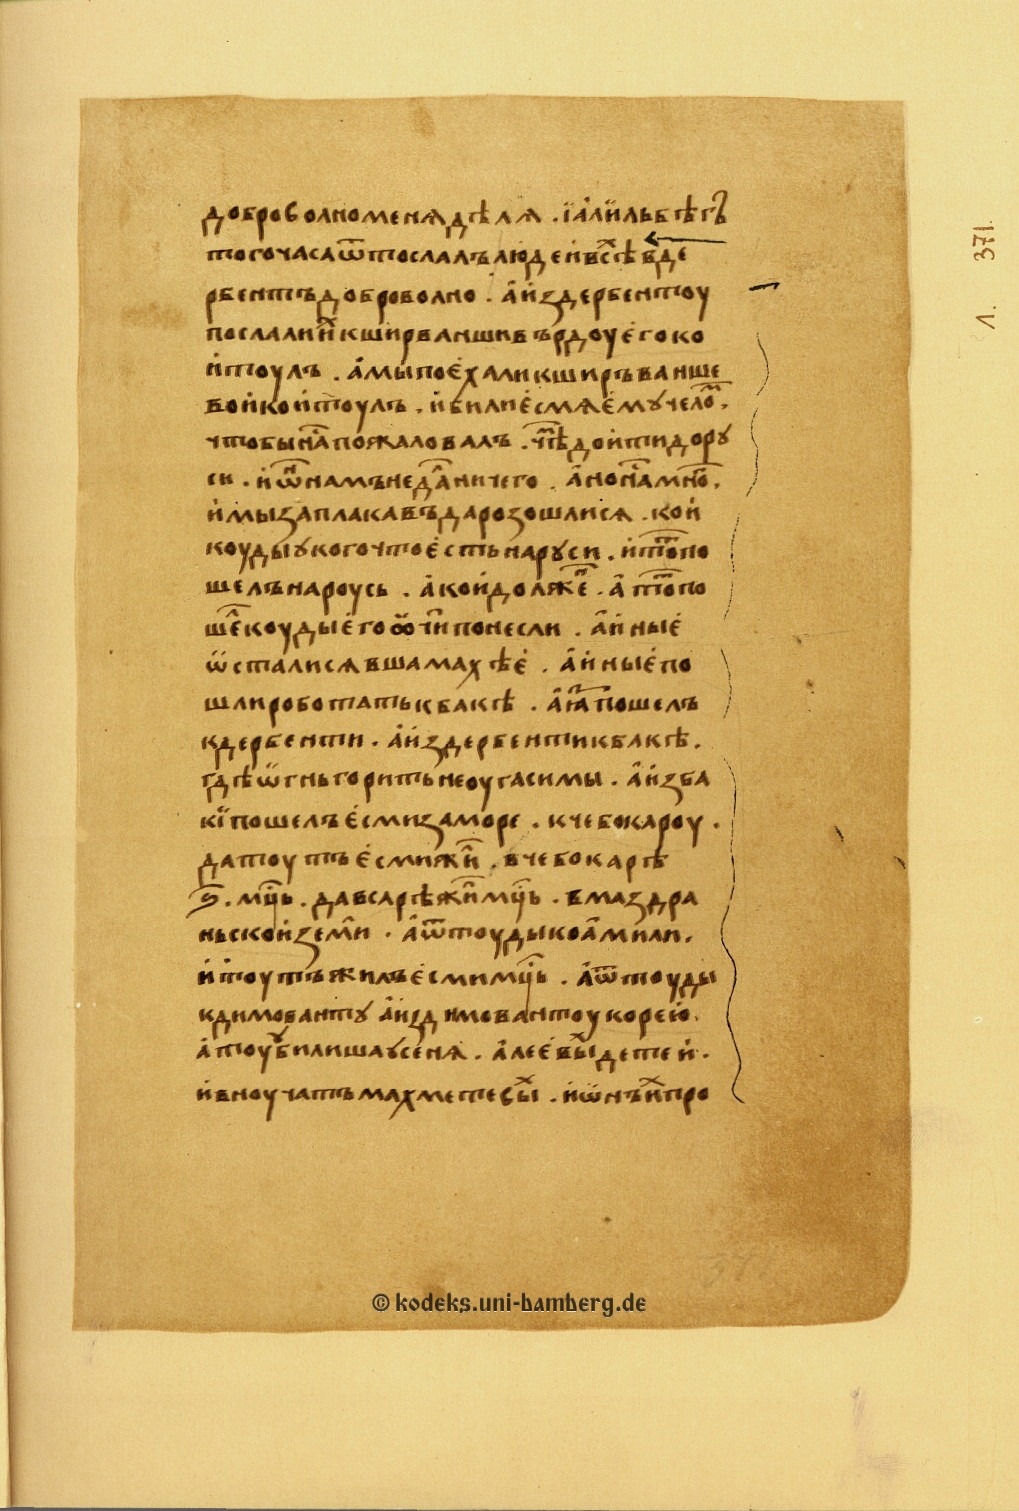 доброволно меня дѣля . ї а҆лильбѣгъ
того часа ѿтослалъ люде и҆ всѣ в де
рбентъ доброволно . а҆ и҆здербентоу
послали и҆ к ширванши въ рдоу е҆го ко
и҆тоулъ . а҆ мы пое҆хали к ширъванше
вои҆ кои҆тоулъ . и҆ били е҆смя е҆мꙋ чело .
чтобы на пожаловалъ . чѣ дои҆ти до рꙋ
си . и҆ ѡн намъ не да ничего . а҆но на мно .
и҆ мы заплакавъ да розошлися . кои҆
коуды ꙋ кого что е҆сть на рꙋси . и҆ то по
шелъ на роусь . а҆ кои҆ долже . а҆ тто по
ше коуды е҆го ѻчи понесли . а҆ и҆ные҆
ѡсталися в шамахѣе҆ . а҆ и҆ные҆ по
шли роботать к бакѣ . а҆ ꙗ пошелъ
к дербенти . а҆ и҆здербенти к бакѣ .
гдѣ ѡгнь горить неоугасимы . а҆ и҆зба
кї пошелъ е҆сми за море . к чебокароу .
да тоутъ е҆сми жи . в чебокарѣ
ѕ . мць . да в сарѣ жи мць . в маздра
ньскои҆ земи . а҆ ѿтоуды ко а҆мили .
и҆ тоутъ жилъ е҆сми мць . а҆ ѿтоуды
к димовантꙋ а҆ и҆здимовантоу ко рею҆ .
а҆ тоу оубили шаꙋсеня . а҆лее҆вы детеи҆ .
и҆ вноучатъ махметевы . и҆ ѡнъ и҆ про
л. 371.
© kodeks.uni-bamberg.de